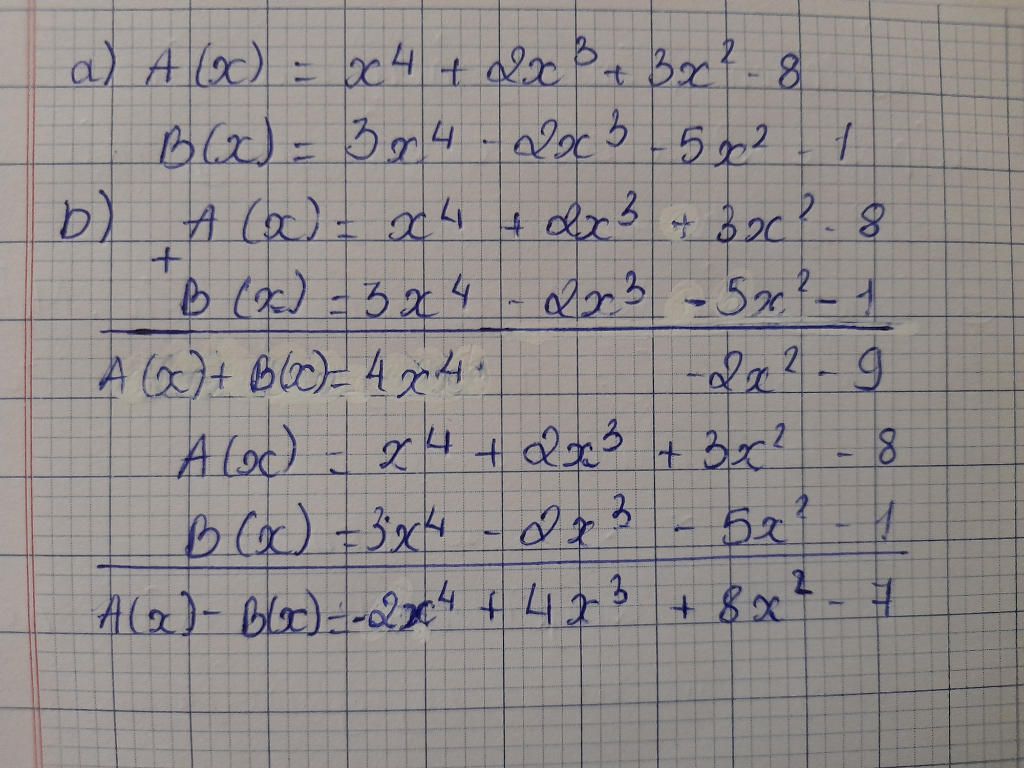 a) A(x) = x⁴ + 2x³ + 3x² - 8
B(x) = 3x⁴ - 2x³ - 5x² - 1
b) A(x) = x⁴ + 2x³ + 3x² - 8
+
B(x) = 3x⁴ - 2x³ - 5x² - 1
A(x) + B(x) = 4x⁴ - 2x² - 9
A(x) = x⁴ + 2x³ + 3x² - 8
B(x) = 3x⁴ - 2x³ - 5x² - 1
A(x) - B(x) = -2x⁴ + 4x³ + 8x² - 7